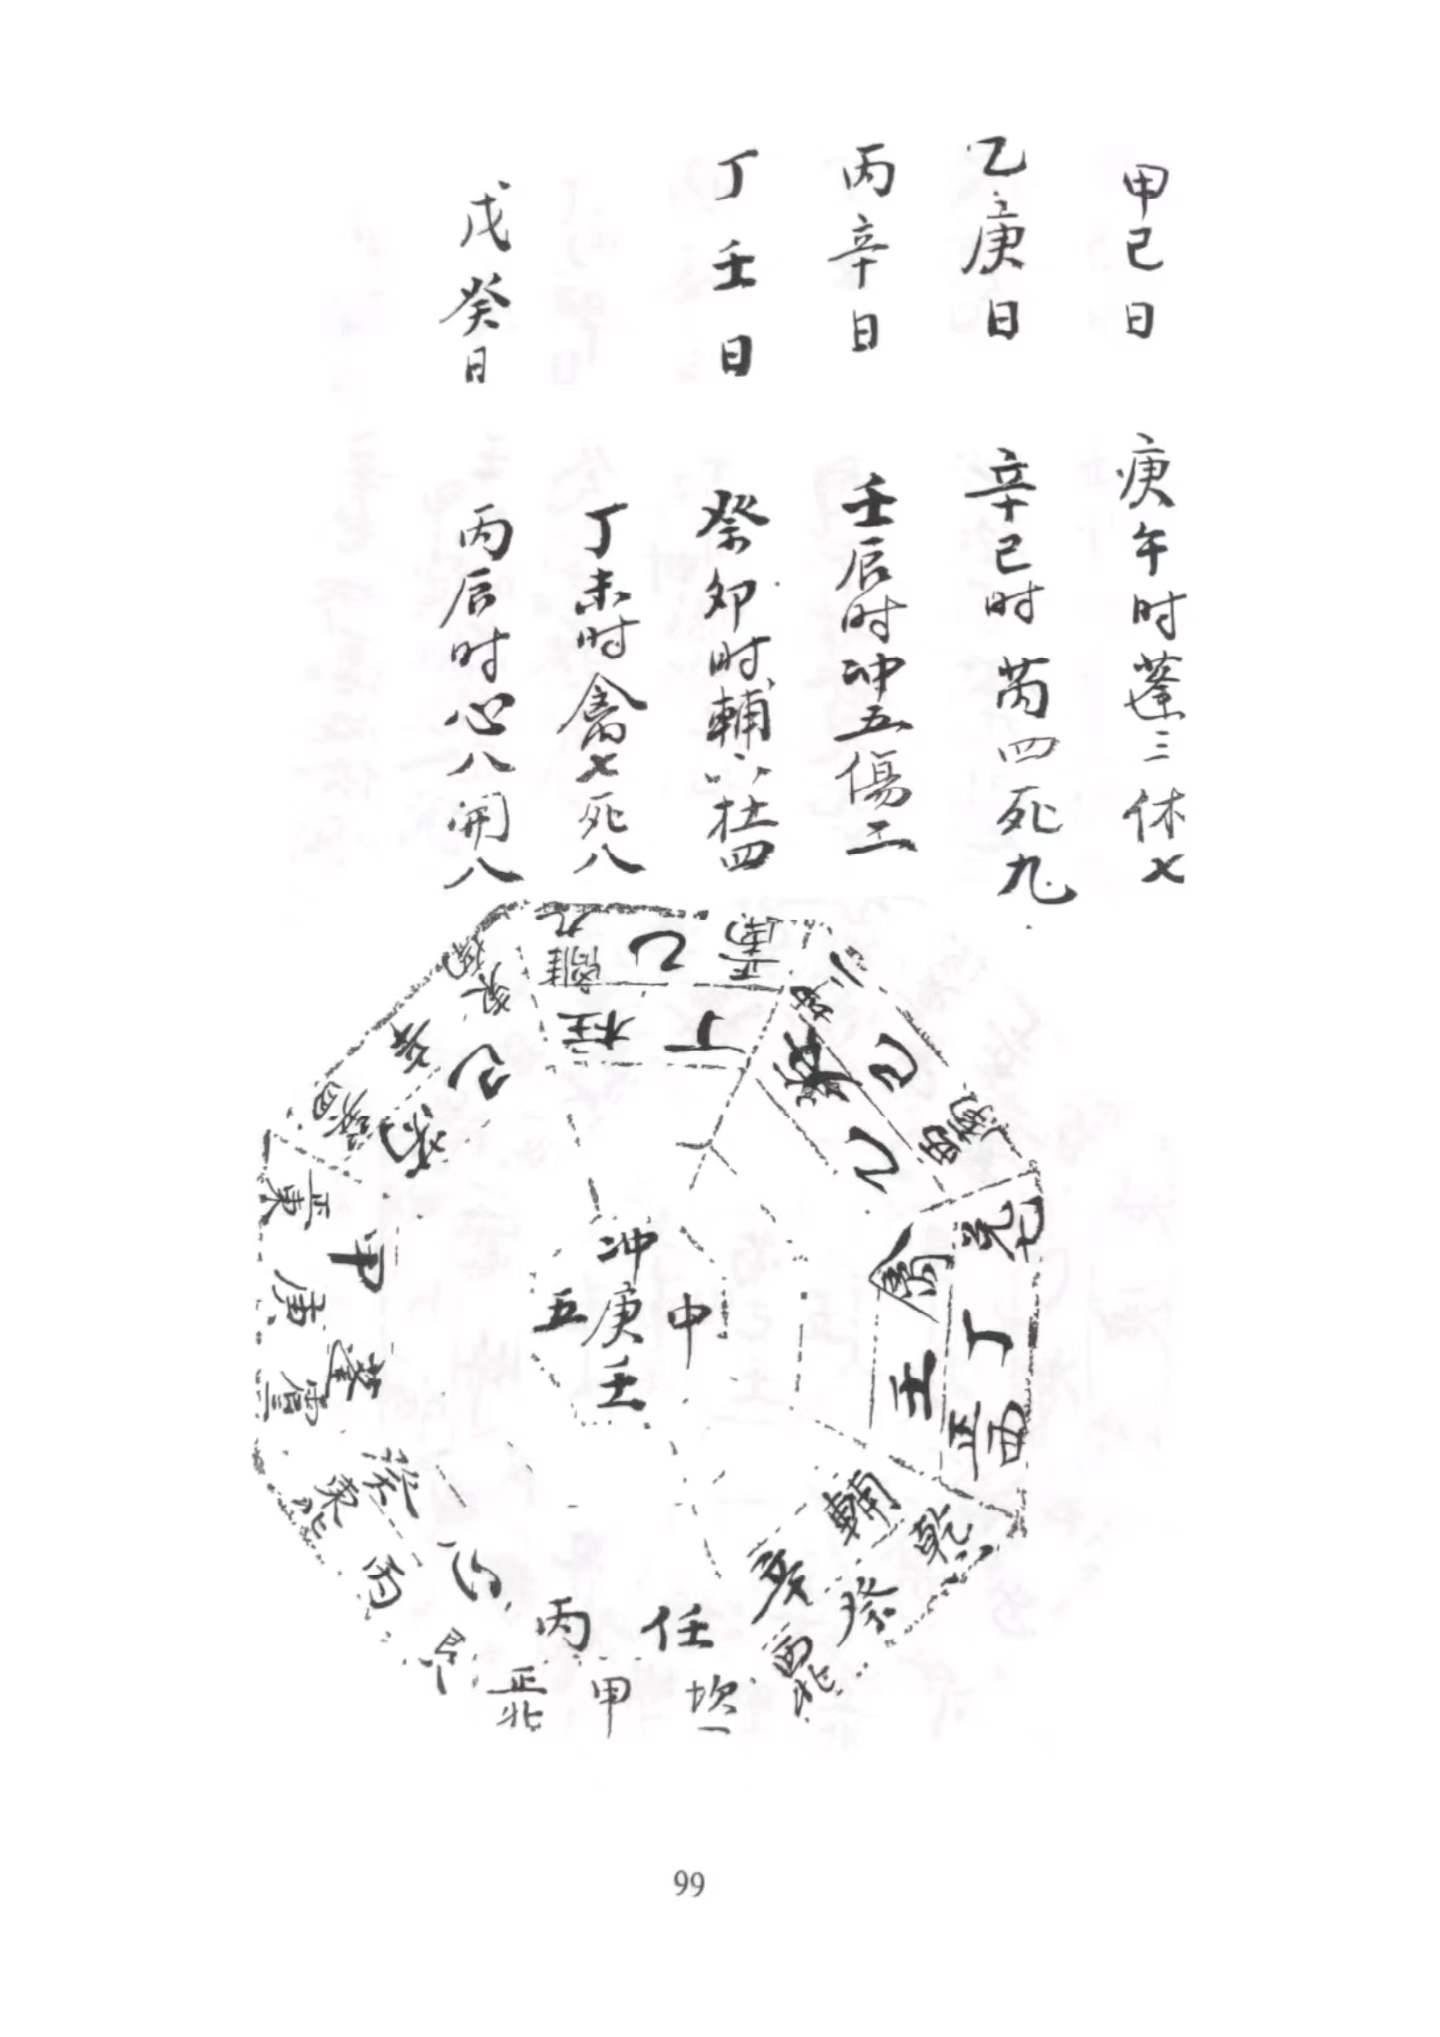 甲己日 庚午时蓬三休七
乙庚日 辛巳时芮四死九
丙辛日 壬辰时冲五傷二
丁壬日 癸卯时輔六杜四
丁未时禽七死八
戊癸日 丙辰时心八開八
離九
乙
正南
柱
丁
坤二
己
西南
乙
兌七
丁
正西
禽
壬
乾六
癸
西北
輔
坎一
甲
正北
任
丙
艮八
丙
東北
震三
庚
正東
蓬
甲
巽四
東南
冲
五庚中
壬
99